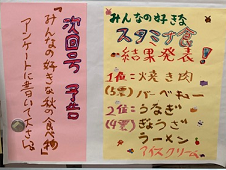 みんなの好きな
スタミナ食
結果発表!
1位:焼き肉
(3票)バーベキュー
2位:うなぎ
(4票)ぎょうざ
ラーメン
アイスクリーム
次回号 予告
『みんなの好きな秋の食べ物』
アンケートに書いてください。